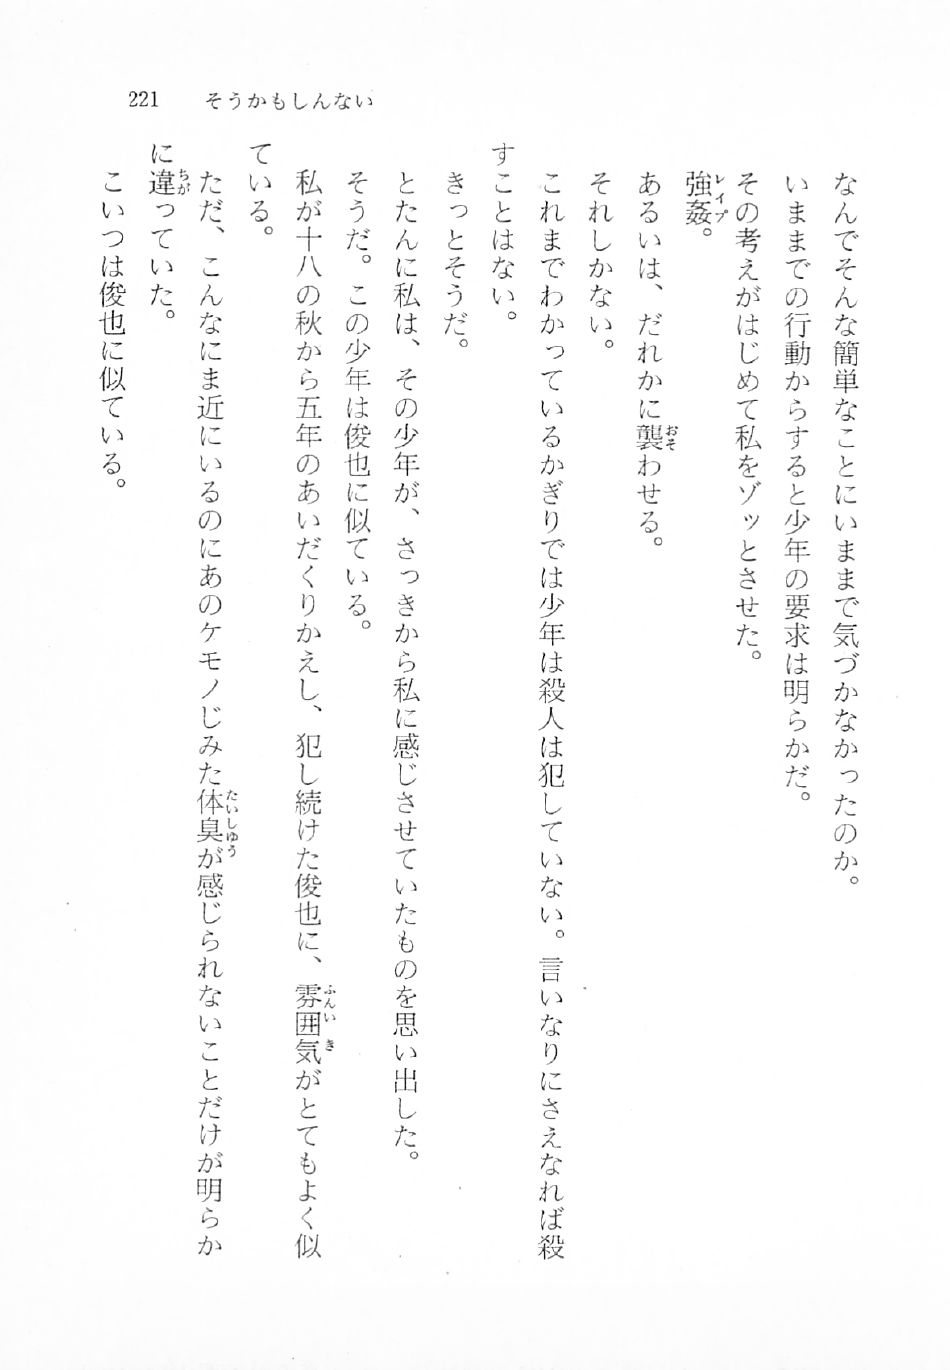 221 そうかもしんない
なんでそんな簡単なことにいままで気づかなかったのか。
いままでの行動からすると少年の要求は明らかだ。
その考えがはじめて私をゾッとさせた。
強姦。
レイプ
あるいは、だれかに襲わせる。
おそ
それしかない。
これまでわかっているかぎりでは少年は殺人は犯していない。言いなりにさえなれば殺
すことはない。
きっとそうだ。
とたんに私は、その少年が、さっきから私に感じさせていたものを思い出した。
そうだ。この少年は俊也に似ている。
私が十八の秋から五年のあいだくりかえし、犯し続けた俊也に、雰囲気がとてもよく似
ふんいき
ている。
ただ、こんなにま近にいるのにあのケモノじみた体臭が感じられないことだけが明らか
たいしゆう
に違っていた。
ちが
こいつは俊也に似ている。